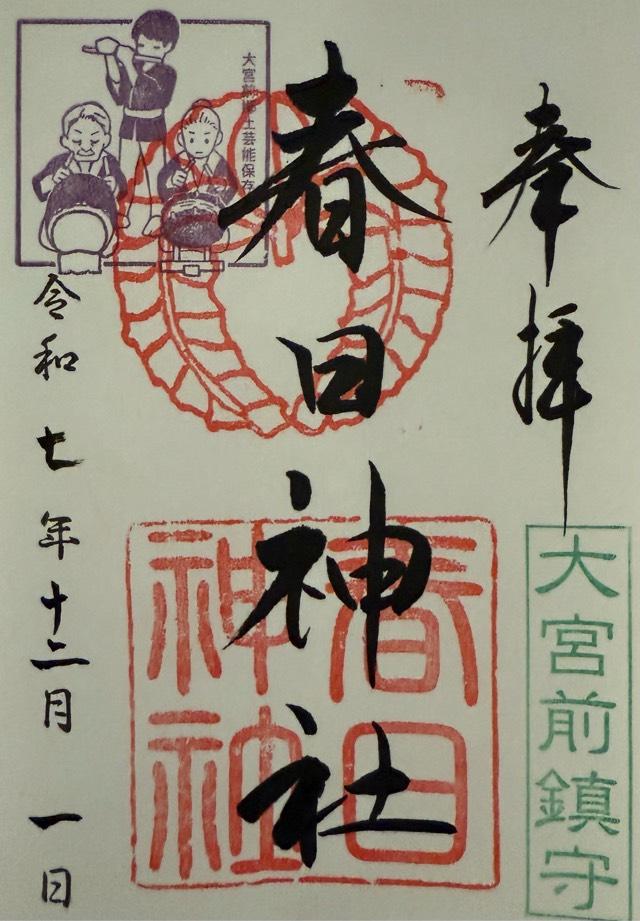 奉拝
大宮前鎮守
春日神社
春日
神社
大宮前郷土芸能保存
令和七年十二月一日